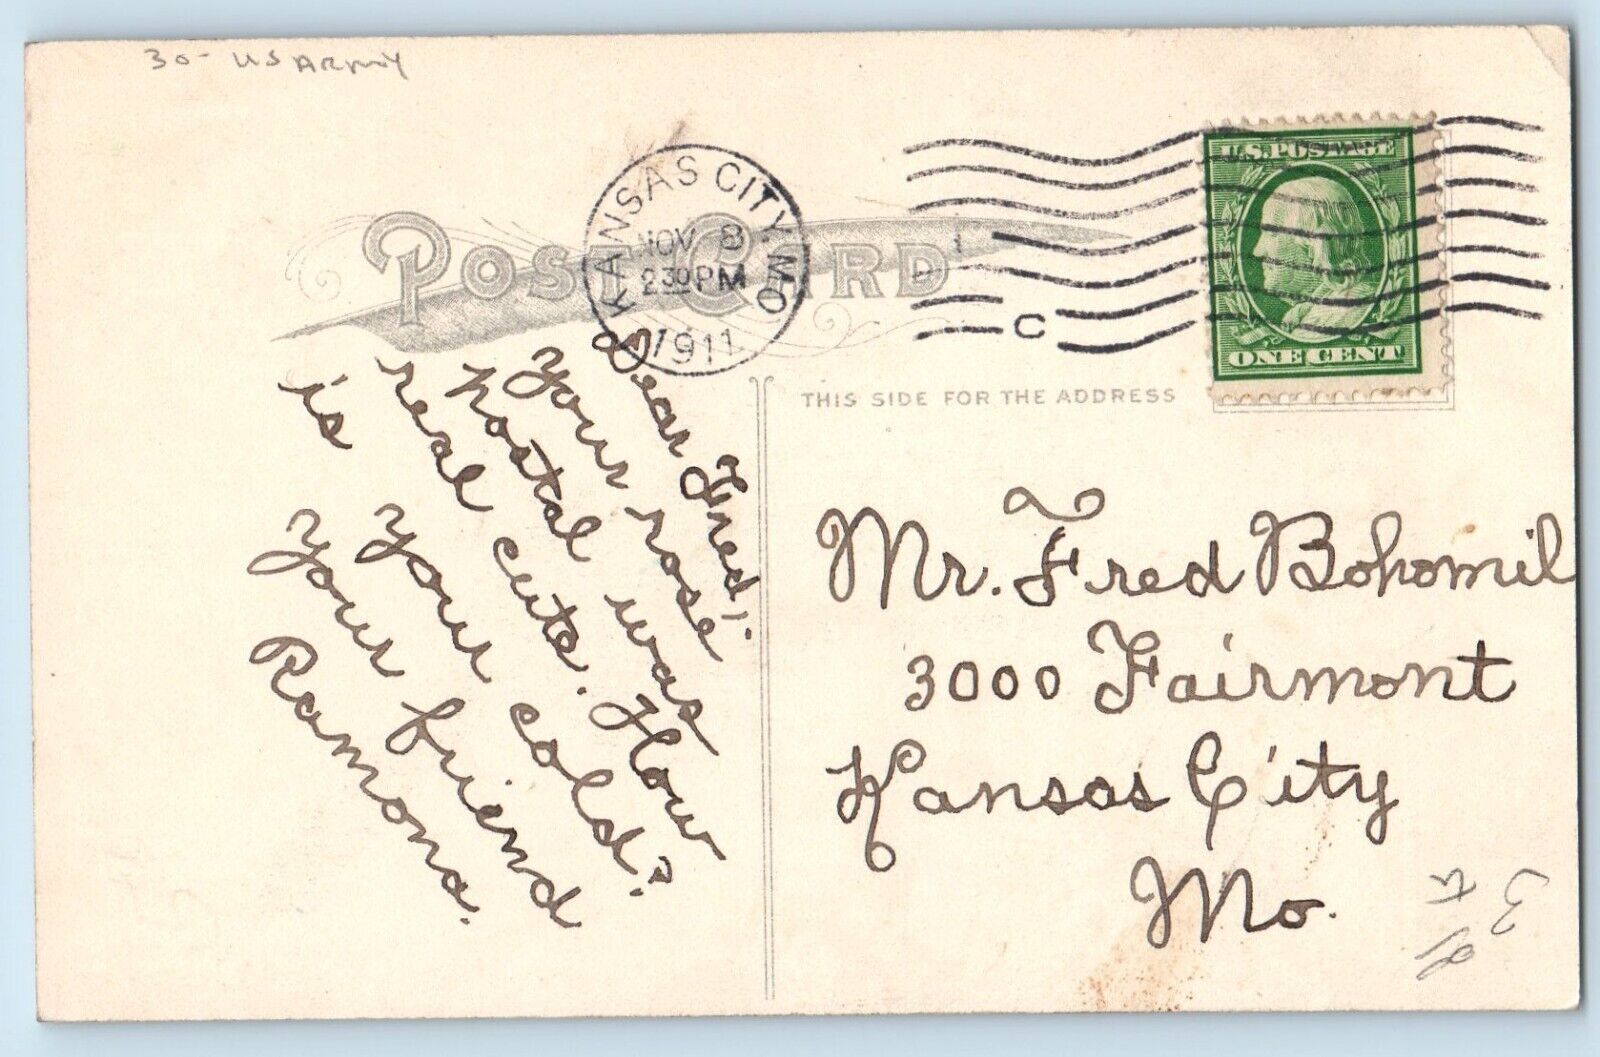 30- US ARMY
POST CARD
KANSAS CITY, MO.
NOV 8
2 30 PM
1911
C
U.S. POSTAGE
ONE CENT
THIS SIDE FOR THE ADDRESS
Dear Fred;.
Your rose
postal was
real cute. How
is your cold?
Your friend
Ramona.
Mr. Fred Bohomil
3000 Fairmont
Kansas City
Mo.